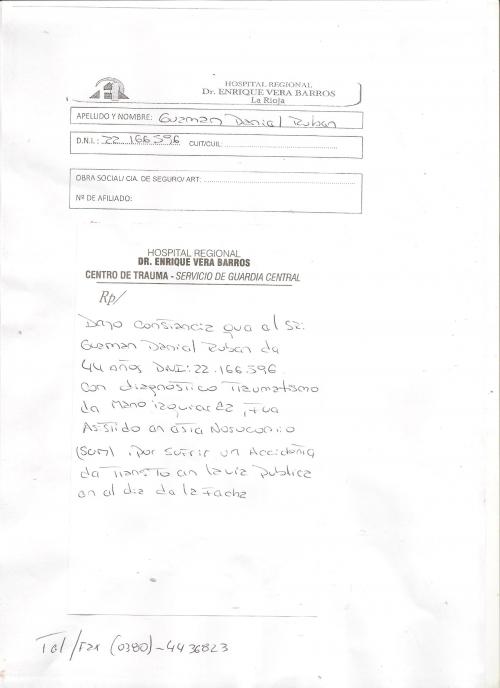 HOSPITAL REGIONAL
Dr. ENRIQUE VERA BARROS
La Rioja
APELLIDO Y NOMBRE: Guzman Daniel Ruben
D.N.I.: 22.166.596 CUIT/CUIL:
OBRA SOCIAL/ CIA. DE SEGURO/ ART:
Nº DE AFILIADO:
HOSPITAL REGIONAL
DR. ENRIQUE VERA BARROS
CENTRO DE TRAUMA - SERVICIO DE GUARDIA CENTRAL
Rp/
Dejo constancia que el Sr:
Guzman Daniel Ruben de
44 años DNI: 22.166.596
con diagnóstico Traumatismo
de Mano izquierda, Fue
Asistido en este Nosocomio
(Sum), por sufrir un Accidente
de Transito en la via publica
en el dia de la Fecha
Tel/Fax (0380)-4436823